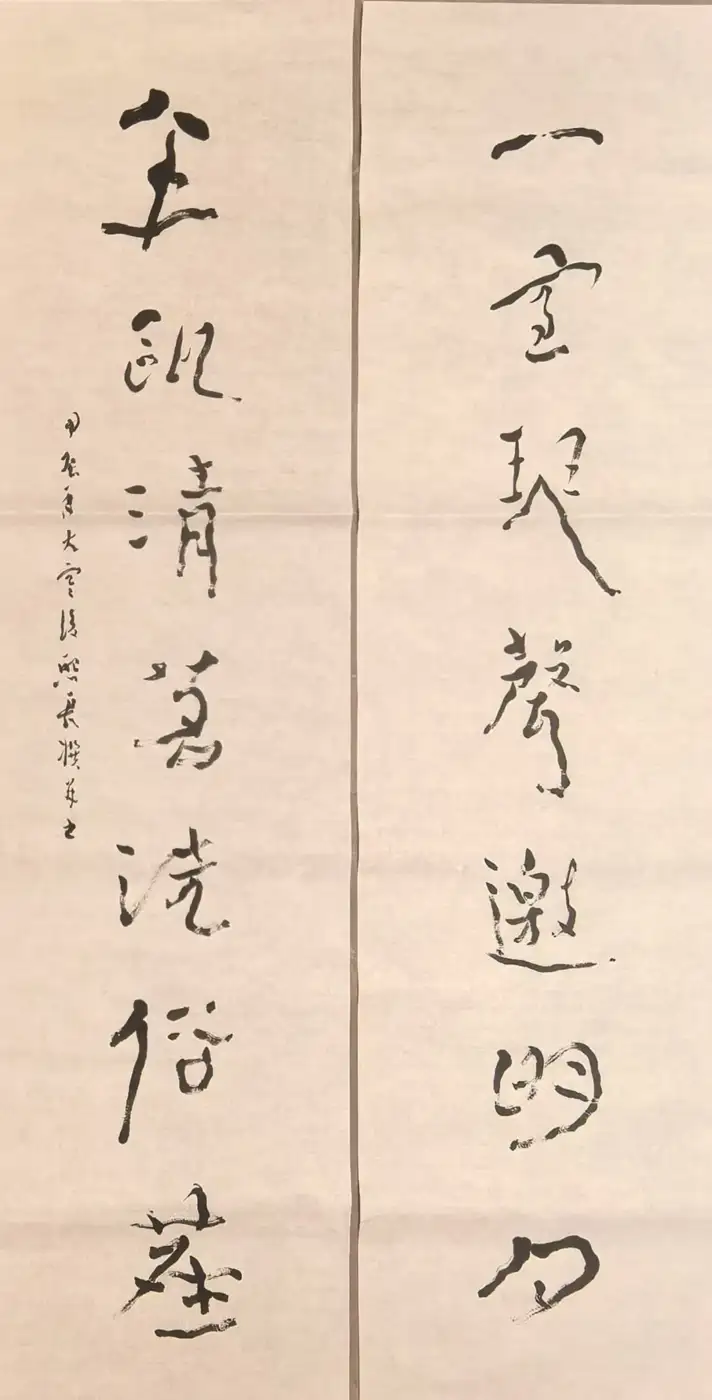 一室琴聲邀明月
金甌清茗洗俗塵
甲辰年大雪後熙長撰并书